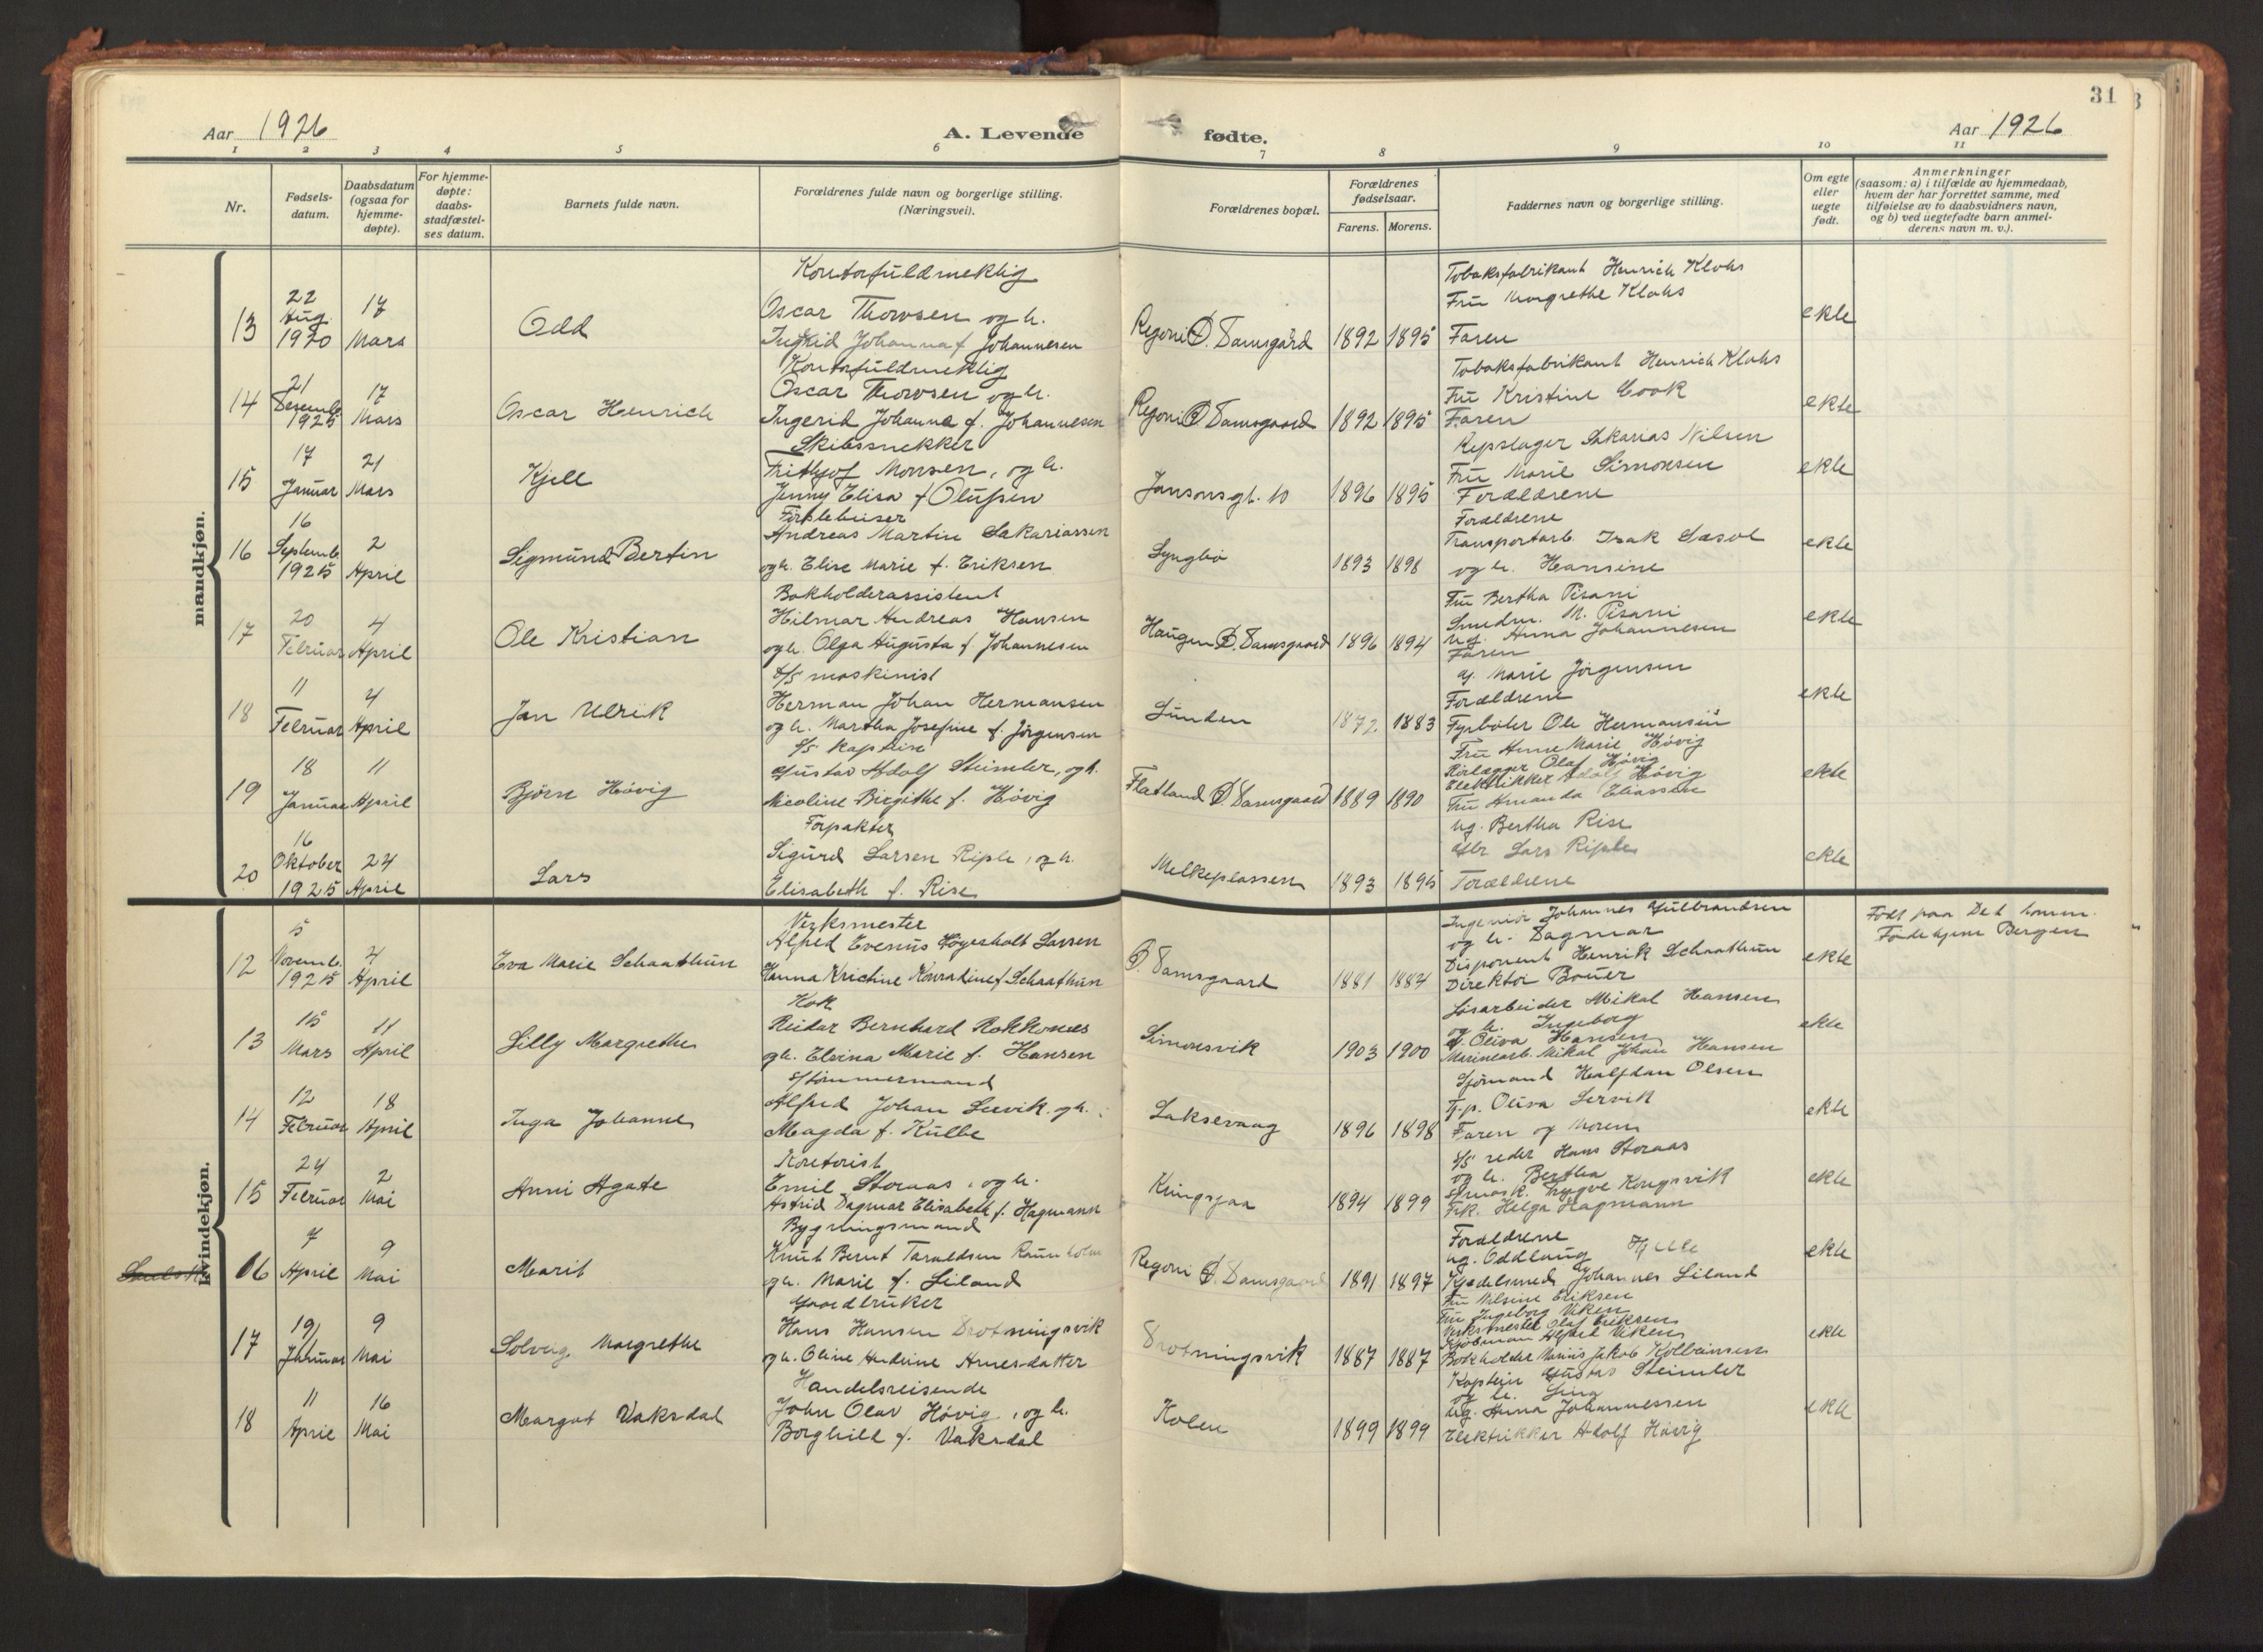 31
Aar 1926
A. Levende fødte.
Aar 1926
1 2 3 4 5 6 7 8 9 10 11
Nr.
Fødsels-
datum.
Daabsdatum
(ogsaa for
hjemme-
døpte).
For hjemme-
døpte:
daabs-
stadfæstel-
ses datum.
Barnets fulde navn.
Forældrenes fulde navn og borgerlige stilling.
(Næringsvei).
Forældrenes bopæl.
Forældrenes
fødselsaar.
Farens. Morens.
Faddernes navn og borgerlige stilling.
Om egte
eller
uegte
født.
Anmerkninger
(saasom: a) i tilfælde av hjemmedaab,
hvem der har forrettet samme, med
tilføielse av to daabsvidners navn,
og b) ved uegtefødte barn anmel-
derens navn m. v.).
mandkjøn.
13
22
Aug.
1920
17
Mars
Odd
Kontorfuldmektig
Oscar Thorvsen og h.
Ingrid Johanna f. Johannesen
Regoni Ø. Damsgård
1892 1895
Tobaksfabrikant Henrich Klohs
Fru Margrethe Klohs
Faren
ekte
14
21
Desemb.
1925
17
Mars
Oscar Henrich
Kontorfuldmektig
Oscar Thorvsen og h.
Ingerid Johanna f. Johannesen
Regoni Ø Damsgaard
1892 1895
Tobaksfabrikant Henrich Klohs
Fru Kristine Cook
Faren
ekte
15
17
Januar
21
Mars
Kjell
Skibssnekker
Frithjof Monsen, og h.
Jenny Elisa f Olufsen
Jansonsgt. 10
1896 1895
Repslager Sakarias Nilsen
Fru Marie Simonsen
Forældrene
ekte
16
16
Septemb.
1925
2
April
Sigmund Bertin
Andreas Martin Sakariassen
og h. Elise Marie f. Eriksen
Lyngbø
1893 1898
Forældrene
Transportarb. Isak Sæsol
og h. Hansine
ekte
17
20
Februar
4
April
Ole Kristian
Bokholderassistent
Hilmar Andreas Hansen
og h. Olga Augusta f. Johannesen
Haugen Ø. Damsgaard
1896 1894
Fru Bertha Pisani
Smedm. M. Pisani
ug. Anna Johannesen
Faren
ekte
18
11
Februar
4
April
Jan Ulrik
S/S maskinist
Herman Johan Hermansen
og h. Martha Josefine f. Jørgensen
Lunden
1872 1883
g. Marie Jørgensen
Forældrene
Fyrbøter Ole Hermansen
ekte
19
18
Januar
11
April
Bjørn Høvig
S/S kaptein
Gustav Adolf Steimler, og h.
Nicoline Birgithe f. Høvig
Flatland Ø Damsgaard
1889 1890
Fru Anne Marie Høvig
Rørlægger Olaf Høvig
Elektrikker Adolf Høvig
Fru Amanda Eliassen
ekte
20
16
Oktober
1925
24
April
Lars
Forpakter
Sigurd Larsen Riple, og h.
Elisabeth f. Rise
Melkeplassen
1893 1895
ug. Bertha Rise
Gbr. Lars Riple
Forældrene
ekte
kvindekjøn.
12
5
Novemb.
1925
4
April
Eva Marie Schaathun
Verksmester
Alfred Evenus Høyesholt Larsen
Hanna Kristine Konradine f Schaathun
Ø. Damsgaard
1881 1884
Ingeniør Johannes Gulbrandsen
og h. Dagmar
Disponent Henrik Schaathun
Direktør Bøuer
ekte
Født paa Det komm.
Fødehjem Bergen
13
15
Mars
11
April
Lilly Margrethe
Kok
Reidar Bernhard Rokkones
og h. Elvina Marie f. Hansen
Simonsvik
1903 1900
Løsarbeider Mikal Hansen
og h. Ingeborg
g. Oliva Hansen
Marinearb. Mikal Johan Hansen
ekte
14
12
Februar
18
April
Inga Johanne
S/tømmermand
Alfred Johan Servik. og h.
Magda f. Kulbe
Laksevaag
1896 1898
Sjømand Halfdan Olsen
Tj.p. Oliva Servik
Faren og Moren
ekte
15
24
Februar
2
Mai
Anni Agate
Kontorist
Emil Storaas, og h.
Astrid Dagmar Elisabeth f. Hagmann
Kringsjaa
1894 1899
S/S reder Hans Storaas
og h. Bertha
S/mask. Trygve Kongsvik
Frk. Helga Hagmann
ekte
16
7
April
9
Mai
Marit
Bygningsmand
Knut Bernt Taraldsen Raunholm
og h. Marie f. Liland
Regoni Ø. Damsgaard
1891 1897
Forældrene
ug. Oddlaug Hjelle
Kjedelsmed Johannes Liland
ekte
17
19
Januar
9
Mai
Solveig Margrethe
Gaardbruker
Hans Hansen Drotningsvik
og h. Oline Andrine Arnesdatter
Drotningsvik
1887 1887
Fru Nilsine Eriksen
Fru Ingeborg Viken
Verksmester Olaf Eriksen
Kjøbman Alfred Viken
Bokholder Marius Jakob Kolbeinsen
ekte
18
11
April
16
Mai
Margot Vaksdal
Handelsreisende
John Olav Høvig, og h.
Borghild f. Vaksdal
Kolen
1899 1899
Kaptein Gustav Steimler
og h. Lina
ug. Anna Johannessen
Elektrikker Adolf Høvig
ekte